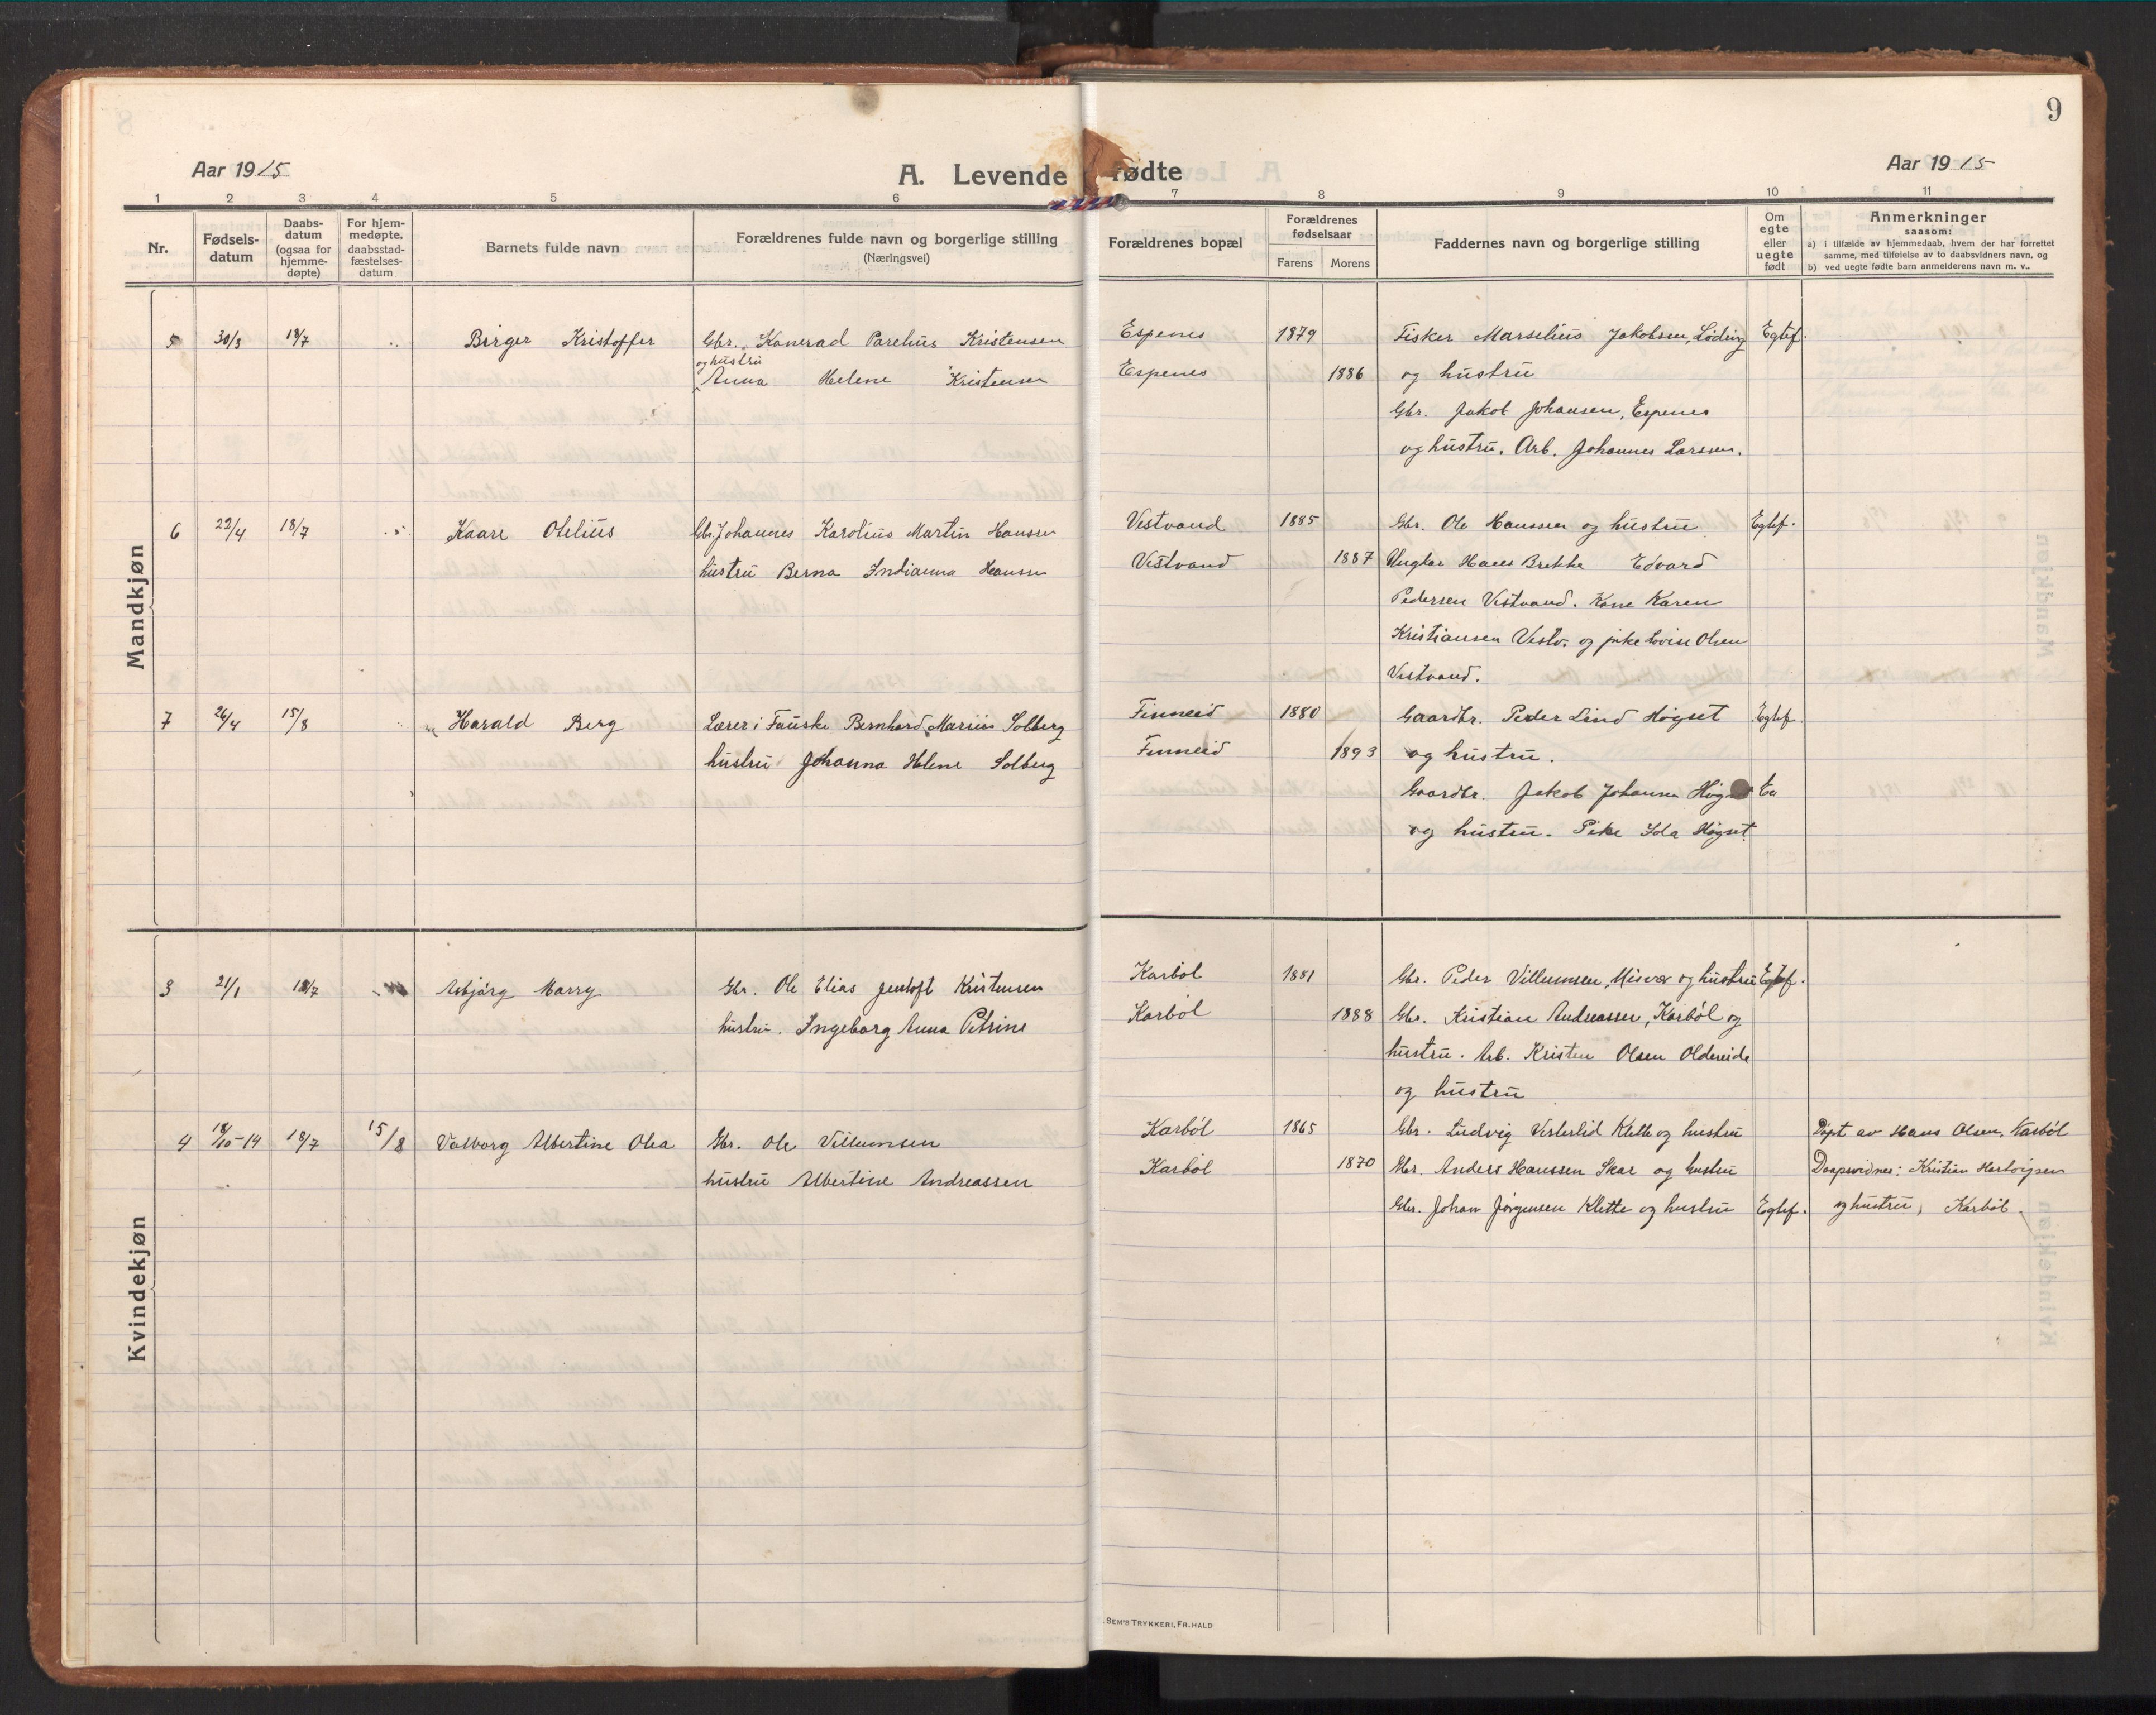 9
Aar 1915
A. Levende fødte
Aar 1915
1 2 3 4 5 6 7 8 9 10 11
Nr.
Fødsels-datum
Daabs-datum (ogsaa for hjemme-døpte)
For hjem-medøpte, daabsstad-fæstelses-datum
Barnets fulde navn
Forældrenes fulde navn og borgerlige stilling
(Næringsvei)
Forældrenes bopæl
Forældrenes fødselsaar
Farens Morens
Faddernes navn og borgerlige stilling
Om egte eller uegte født
Anmerkninger
saasom:
a) i tilfælde av hjemmedaab, hvem der har forrettet
samme, med tilføielse av to daabsvidners navn, og
b) ved uegte fødte barn anmelderens navn m. v..
Mandkjøn
5 30/3 18/7 Birger Kristoffer Gbr. Konerad Parelius Kristensen Espenes 1879 Fisker Marselius Jakobsen, Løding Egtef.
og hustru
Anna Helene Kristensen Espenes 1886 og hustru
Gbr. Jakob Johansen, Espenes
og hustru. Arb. Johannes Larssen.
6 22/4 18/7 Kaare Otelius Gbr. Johannes Karolius Martin Hanssen Vestvand 1885 Gbr. Ole Hanssen og hustru Egtef.
hustru Berna Indianna Hansen Vestvand 1887 Ungkar Hans Brekke Edvard
Pedersen Vestvand. Kone Karen
Kristiansen Vestv. og pike Lovise Olsen
Vestvand.
7 26/4 15/8 Harald Berg Lærer i Fauske Bernhard Marius Solberg Finneid 1880 Gaardbr. Peder Lind Høgset Egtef.
hustru Johanna Helene Solberg Finneid 1893 og hustru.
Gaardbr. Jakob Johansen
og hustru. Pike Ida Høgset
Kvindekjøn
3 21/1 18/7 Asbjørg Marry Gbr. Ole Elias Jentoft Kristensen Karbøl 1881 Gbr. Peder Villumsen, Misvær og hustru Egtef.
hustru. Ingeborg Anna Petrine Karbøl 1888 Gbr. Kristian Andreassen, Karbøl og
hustru. Arb. Kristen Olsen Oldereide
og hustru
4 18/10-14 18/7 15/8 Valborg Albertine Olea Gbr. Ole Villumsen Karbøl 1865 Gbr. Ludvig Vesterlid Klette og hustru Døpt av Hans Olsen, Karbøl
hustru Albertine Andreassen Karbøl 1870 Gbr. Anders Hanssen Skar og hustru Daapsvidner: Kristian Hartvigsen
Gbr. Johan Jørgensen Klette og hustru Egtef. og hustru, Karbøl.
SEM'S TRYKKERI, FR. HALD